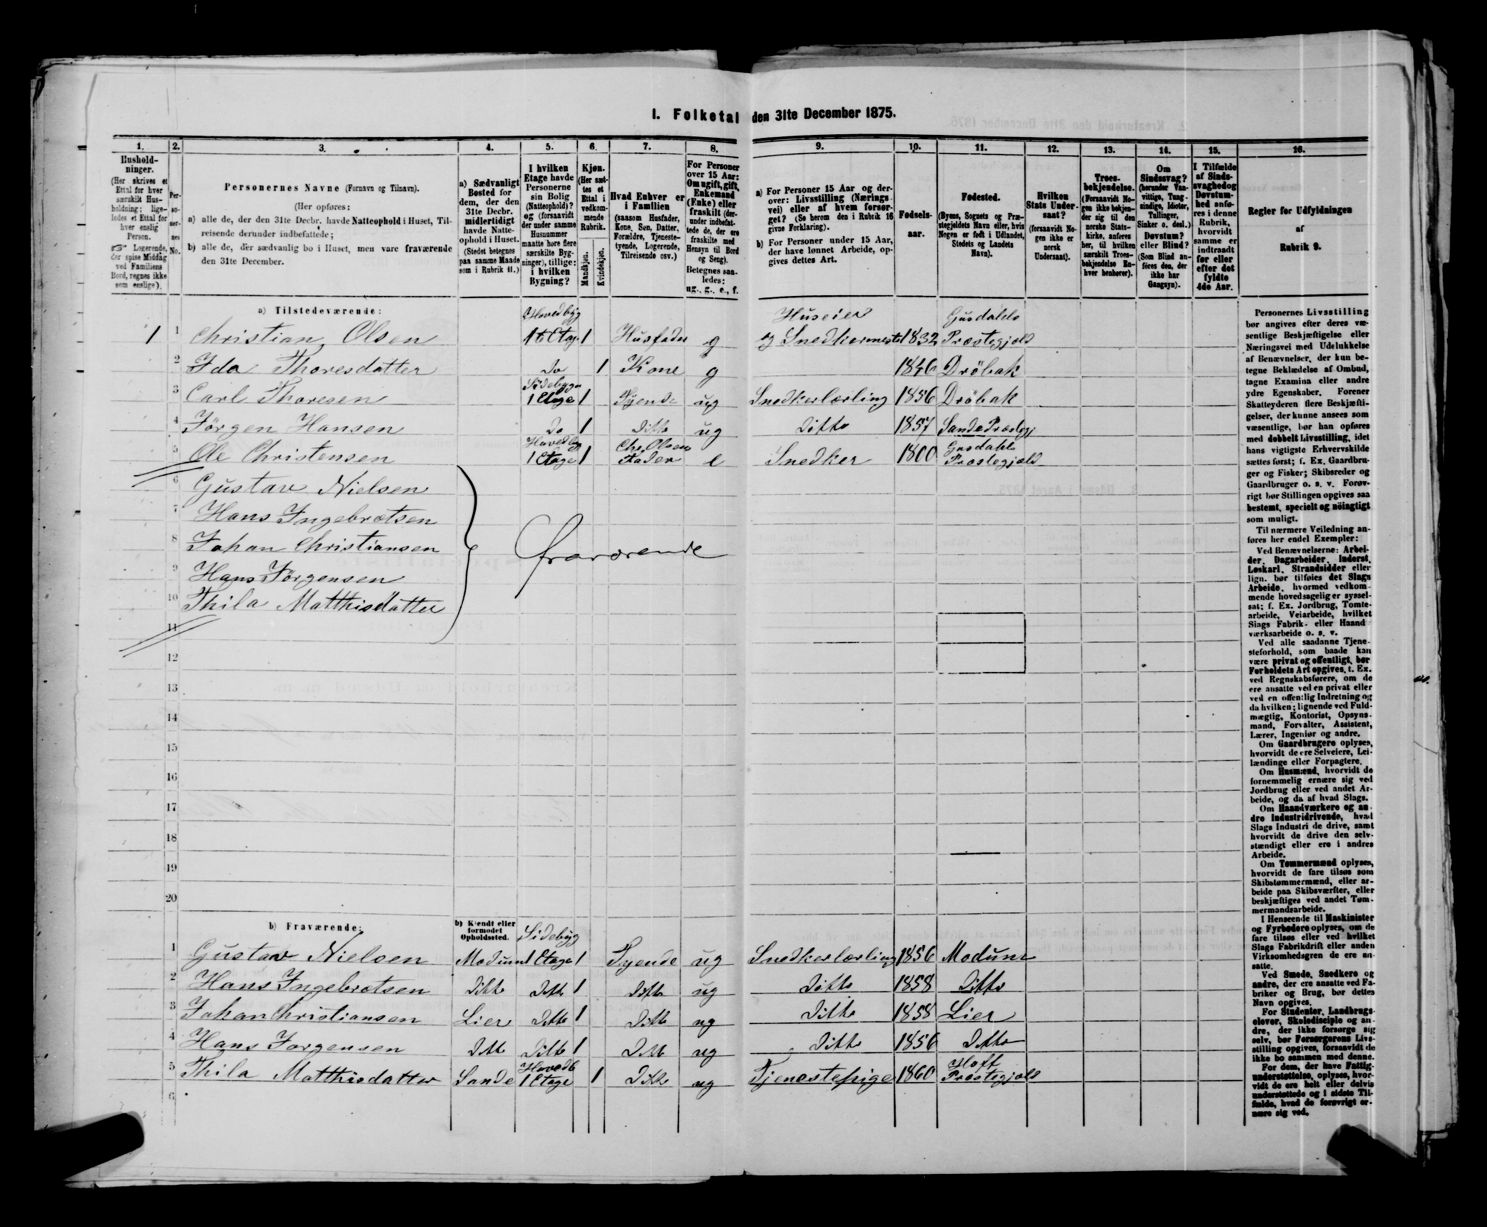 1. Folketal den 31te December 1875.
1. 2. 3. 4. 5. 6. 7. 8. 9. 10. 11. 12. 13. 14. 15. 16.
Hushold-
ninger.
(Her skrives et
Ettal for hver
særskilt Hus-
holdning; lige-
ledes et Ettal for
hver enslig
Person.
☞ Logerende,
der spise Middag
ved Familiens
Bord, regnes ikke
som enslige).
Per-
so-
ner-
nes
No.
Personernes Navne (Fornavn og Tilnavn).
(Her opføres:
a) alle de, der den 31te Decbr. havde Natteophold i Huset, Til-
reisende derunder indbefattede;
b) alle de, der sædvanlig bo i Huset, men vare fraværende
den 31te December.
a) Sædvanligt
Bosted for
dem, der den
31te Decbr.
midlertidigt
havde Natte-
ophold i Huset.
(Stedet betegnes
paa samme Maade
som i Rubrik 11.)
I hvilken
Etage havde
Personerne
sin Bolig
(Natteophold)?
og (forsaavidt
der under samme
Husnummer
maatte høre flere
særskilte Byg-
ninger), tillige:
i hvilken
Bygning?
Kjøn.
(Her sæt-
tes et
Ettal i
vedkom-
mende
Rubrik.
Mandkjøn.
Kvindekjøn.
Hvad Enhver er
i Familien
(saasom Husfader,
Kone, Søn, Datter,
Forældre, Tjeneste-
tyende, Logerende,
Tilreisende osv.)
For Personer
over 15 Aar:
Om ugift, gift,
Enkemand
(Enke) eller
fraskilt (der-
under indbefat-
tede de, der ere
fraskilte med
Hensyn til Bord
og Seng).
Betegnes saa-
ledes:
ug., g., e., f.
a) For Personer 15 Aar og der-
over: Livsstilling (Nærings-
vei) eller af hvem forsør-
get? (Se herom den i Rubrik 16
givne Forklaring).
b) For Personer under 15 Aar,
der have lønnet Arbeide, op-
gives dettes Art.
Fødsels-
aar.
Fødested.
(Byens, Sognets og Præ-
stegjeldets Navn eller, hvis
Nogen er født i Udlandet,
Stedets og Landets
Navn).
Hvilken
Stats Under-
saat?
(forsaavidt No-
gen ikke er
norsk
Undersaat).
Troes-
bekjendelse.
(Forsaavidt No-
gen ikke bekjen-
der sig til den
norske Stats-
kirke, anføres
her, til hvilken
særskilt Troes-
bekjendelse En-
hver henhører).
Om
Sindssvag?
(herunder Van-
vittige, Tung-
sindige, Idioter,
Tullinger,
Sinker o. desl.)
Døvstum?
eller Blind?
(Som Blind an-
føres den, der
ikke har
Gangsyn).
I Tilfælde
af Sinds-
svaghed og
Døvstum-
hed anfø-
res i denne
Rubrik,
hvorvidt
samme er
indtraadt
før eller
efter det
fyldte
4de Aar.
Regler for Udfyldningen
af
Rubrik 9.
a) Tilstedeværende:
1 1 Christian Olsen Hovedbyg 1ste Etage 1 Husfader g Huseier og Snedkermester 1832 Præstegjeld
2 Ida Thoresdatter Do 1 Kone g 1846 Drøbak
3 Carl Thoresen Sidebygn 1 Etage 1 Tyende ug Snedkerlærling 1856 Drøbak
4 Jørgen Hansen Do 1 Ditto ug Ditto 1857 Sande Præstegj
5 Ole Christensen Hovedbg 1 Etage 1 Chr Olsens Fader e Snedker 1800 Præstegjeld
6 Gustav Nielsen
7 Hans Ingebretsen
8 Johan Christiansen
fraværende
9 Hans Jørgensen
10 Thila Matthisdatter
11
12
13
14
15
16
17
18
19
20
b) Fraværende:
b) Kjendt eller
formodet
Opholdssted.
1 Gustav Nielsen Modum Sidebyg 1 Etage 1 Tyende ug Snedkerlærling 1856 Modum
2 Hans Ingebretsen Ditto Ditto 1 Ditto ug Ditto 1858 Ditto
3 Johan Christiansen Lier Ditto 1 Ditto ug Ditto 1858 Lier
4 Hans Jørgensen Ditto Ditto 1 Ditto ug Ditto 1856 Ditto
5 Thila Matthisdatter Sande Hovedb 1 Etage 1 Ditto ug Tjenestepige 1860 Hoff Præstegjeld
6
Personernes Livsstilling
bør angives efter deres væ-
sentlige Beskjæftigelse eller
Næringsvei med Udelukkelse
af Benævnelser, der kun be-
tegne Beklædelse af Ombud,
tagne Examina eller andre
ydre Egenskaber. Forener
Skatteyderen flere Beskjæfti-
gelser, der kunne ansees som
væsentlige, bør han opføres
med dobbelt Livsstilling, idet
hans vigtigste Erhvervskilde
sættes først; f. Ex. Gaardbru-
ger og Fisker; Skibsreder og
Gaardbruger o. s. v. Forøv-
rigt bør Stillingen opgives saa
bestemt, specielt og nöiagtigt
som muligt.
Til nærmere Veiledning an-
føres her endel Exempler:
Ved Benævnelserne: Arbei-
der, Dagarbeider, Inderst,
Løskarl, Strandsidder eller
lign. bør tilføies det Slags
Arbeide, hvormed vedkom-
mende hovedsagelig er syssel-
sat; f. Ex. Jordbrug, Tomte-
arbeide, Veiarbeide, hvilket
Slags Fabrik- eller Haand
værksarbeide o. s. v.
Ved alle saadanne Tjene-
steforhold, som baade kan
være privat og offentligt, bør
Forholdets Art opgives, t. Ex.
ved Regnskabsførere, om de
ere ansatte ved en privat eller
ved en offentlig Indretning og
da hvilken; lignende ved Fuld-
mægtig, Kontorist, Opsyns-
mand, Forvalter, Assistent,
Lærer, Ingeniør og andre.
Om Gaardbrugere oplyses,
hvorvidt de ere Selveiere, Lei-
lændinge eller Forpagtere.
Om Husmænd, hvorvidt de
fornemmelig ernære sig ved
Jordbrug eller ved andet Ar-
beide, og da af hvad Slags.
Om Haandværkere og an-
dre Industridrivende, hvad
Slags Industri de drive, samt
hvorvidt de drive den selv-
stændigt eller ere i andres
Arbeide.
Om Tømmermænd oplyses,
hvorvidt de fare tilsøs som
Skibstømmermænd, eller ar-
beide paa Skibsværfter, eller
beskjæftiges ved andet Tøm-
mermandsarbeide.
I Henseende til Maskinister
og Fyrbødere oplyses, om de
fare tilsøs eller ved hvilket
Slags Fabrikdrift eller anden
Virksomhedsgren de ere an-
satte.
Ved Smede, Snedkere og
andre, der ere ansatte ved Fa-
briker og Brug, bør dettes
Navn opgives.
For Studenter, Landbrugs-
elever, Skoledisciple og an-
dre, der ikke forsørge sig
selv, bør Forsørgerens Livs-
stilling opgives, forsaavidt de
ikke bo sammen med denne.
For dem, der have Fattig-
understøttelse, oplyses, hvor-
vidt de ere helt eller delvis
understøttede og i sidste Til-
fælde, hvad de forøvrigt er-
nære sig ved.